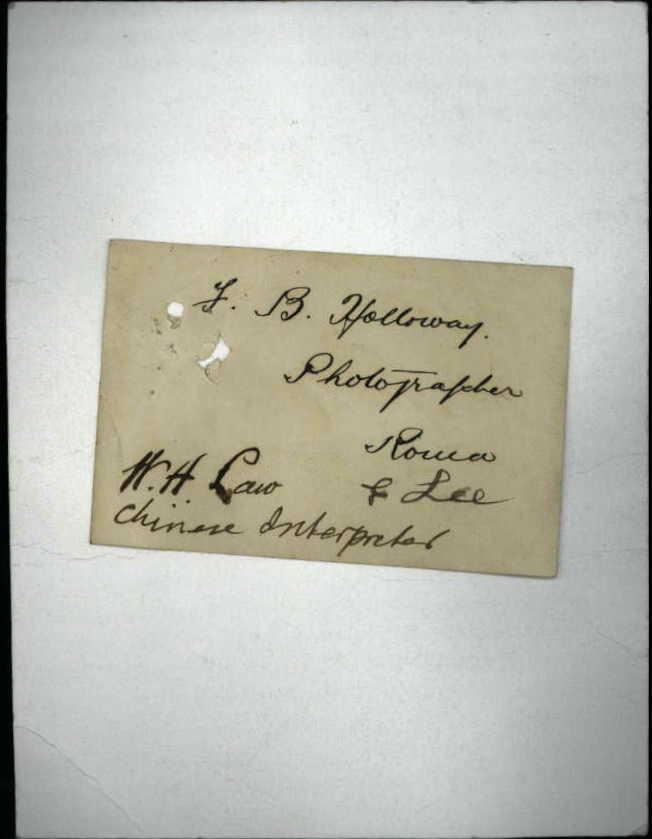 F. B. Holloway.
Photographer
Roma
W. H. Law & Lee
Chinese Interpreter